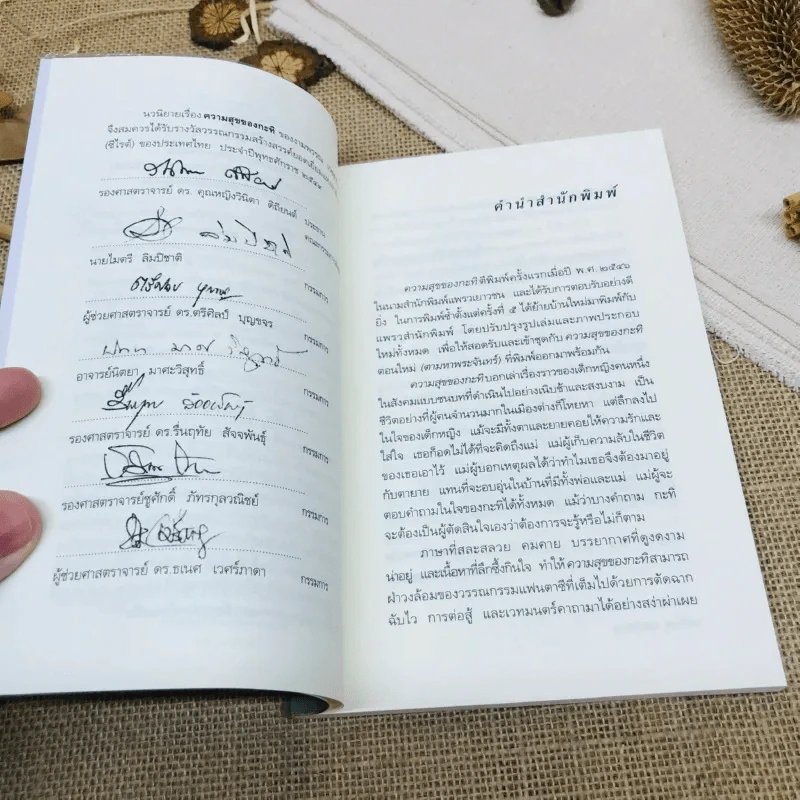 นวนิยายเรื่อง ความสุขของกะทิ ของงามพรรณ
จึงสมควรได้รับรางวัลวรรณกรรมสร้างสรรค์ยอดเยี่ยม
(ซีไรต์) ของประเทศไทย ประจำปีพุทธศักราช ๒๕๔๙
รองศาสตราจารย์ ดร. คุณหญิงวินิตา ดิถียนต์ ประธาน
นายไมตรี ลิมปิชาติ กรรมการ
ผู้ช่วยศาสตราจารย์ ดร.ตรีศิลป์ บุญขจร กรรมการ
อาจารย์นิตยา มาศะวิสุทธิ์ กรรมการ
รองศาสตราจารย์ ดร.รื่นฤทัย สัจจพันธุ์ กรรมการ
รองศาสตราจารย์ชูศักดิ์ ภัทรกุลวณิชย์ กรรมการ
ผู้ช่วยศาสตราจารย์ ดร.ธเนศ เวศร์ภาดา กรรมการ
คำนำสำนักพิมพ์
ความสุขของกะทิ ตีพิมพ์ครั้งแรกเมื่อปี พ.ศ.๒๕๔๖
ในนามสำนักพิมพ์แพรวเยาวชน และได้รับการตอบรับอย่างดี
ยิ่ง ในการพิมพ์ซ้ำตั้งแต่ครั้งที่ ๕ ได้ย้ายบ้านใหม่มาพิมพ์กับ
แพรวสำนักพิมพ์ โดยปรับปรุงรูปเล่มและภาพประกอบ
ใหม่ทั้งหมด เพื่อให้สอดรับและเข้าชุดกับ ความสุขของกะทิ
ตอนใหม่ (ตามหาพระจันทร์) ที่พิมพ์ออกมาพร้อมกัน
ความสุขของกะทิ บอกเล่าเรื่องราวของเด็กหญิงคนหนึ่ง
ในสังคมแบบชนบทที่ดำเนินไปอย่างเนิบช้าและสงบงาม เป็น
ชีวิตอย่างที่ผู้คนจำนวนมากในเมืองต่างก็โหยหา แต่ลึกลงไป
ในใจของเด็กหญิง แม้จะมีทั้งตาและยายคอยให้ความรักและ
ใส่ใจ เธอก็อดไม่ได้ที่จะคิดถึงแม่ แม่ผู้เก็บความลับในชีวิต
ของเธอเอาไว้ แม่ผู้บอกเหตุผลได้ว่าทำไมเธอจึงต้องมาอยู่
กับตายาย แทนที่จะอบอุ่นในบ้านที่มีทั้งพ่อและแม่ แม่ผู้จะ
ตอบคำถามในใจของกะทิได้ทั้งหมด แม้ว่าบางคำถาม กะทิ
จะต้องเป็นผู้ตัดสินใจเองว่าต้องการจะรู้หรือไม่ก็ตาม
ภาษาที่สละสลวย คมคาย บรรยากาศที่ดูงดงาม
น่าอยู่ และเนื้อหาที่ลึกซึ้งกินใจ ทำให้ ความสุขของกะทิ สามารถ
ฝ่าวงล้อมของวรรณกรรมแฟนตาซีที่เต็มไปด้วยการตัดฉาก
ฉับไว การต่อสู้ และเวทมนตร์คาถามาได้อย่างสง่าผ่าเผย